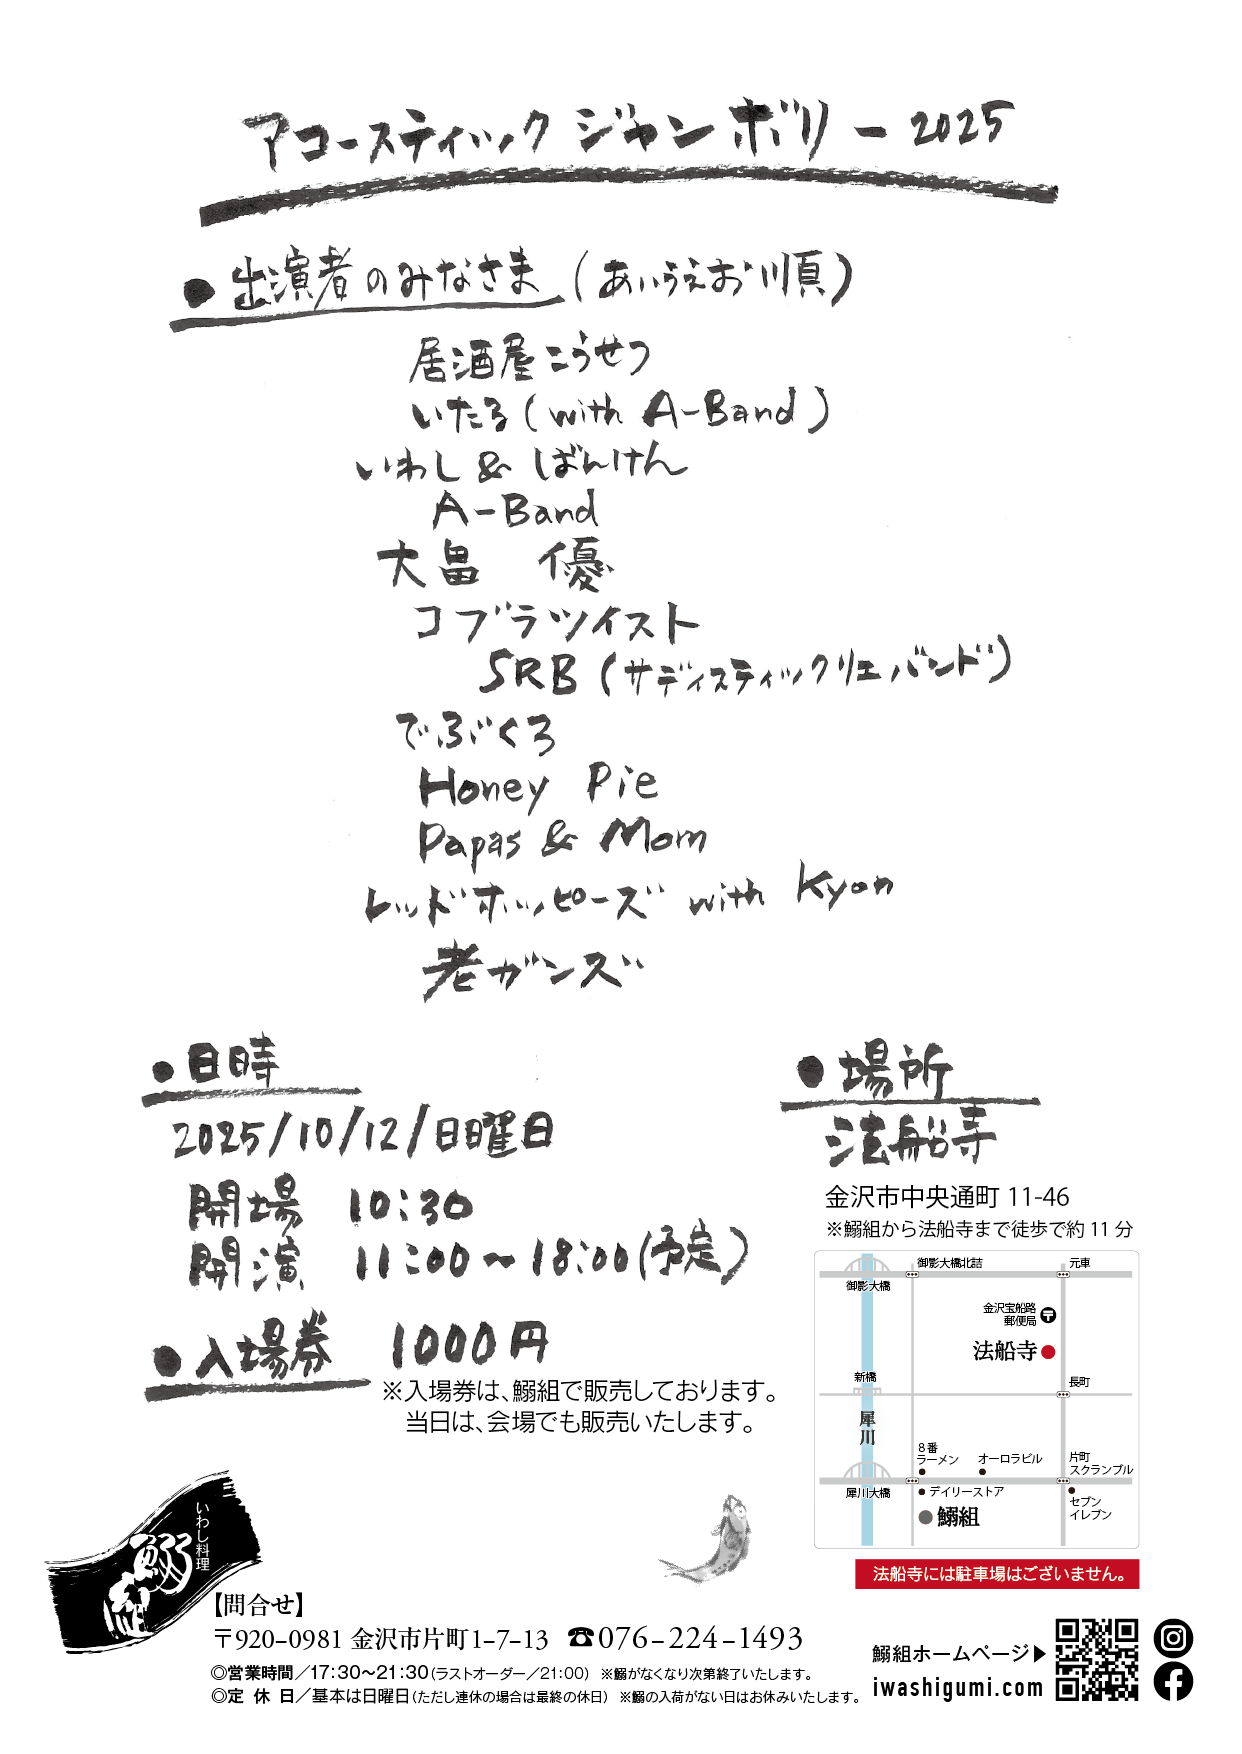 アコースティックジャンボリー2025
●出演者のみなさま(あいうえお順)
居酒屋こうせつ
いたる(with A-Band)
いわし&ばんけん
A-Band
大畠 優
コブラツイスト
SRB(サディスティックリエバンド)
でぶぐろ
Honey Pie
Papas & Mom
レッドホッピーズ with Kyon
老ガンズ
●日時
2025/10/12/日曜日
開場 10:30
開演 11:00~18:00(予定)
●入場券 1000円
※入場券は、鰯組で販売しております。
当日は、会場でも販売いたします。
●場所
法船寺
金沢市中央通町 11-46
※鰯組から法船寺まで徒歩で約 11 分
御影大橋北詰
元車
御影大橋
金沢宝船路
郵便局
法船寺●
新橋
長町
犀川
8番
ラーメン
オーロラビル
片町
スクランブル
犀川大橋
●デイリーストア
セブン
イレブン
●鰯組
法船寺には駐車場はございません。
いわし料理
鰯組
【問合せ】
〒920-0981 金沢市片町1-7-13 ☎076-224-1493
◎営業時間/17:30~21:30(ラストオーダー/21:00) ※鰯がなくなり次第終了いたします。
◎定 休 日/基本は日曜日(ただし連休の場合は最終の休日) ※鰯の入荷がない日はお休みいたします。
鰯組ホームページ▶
iwashigumi.com